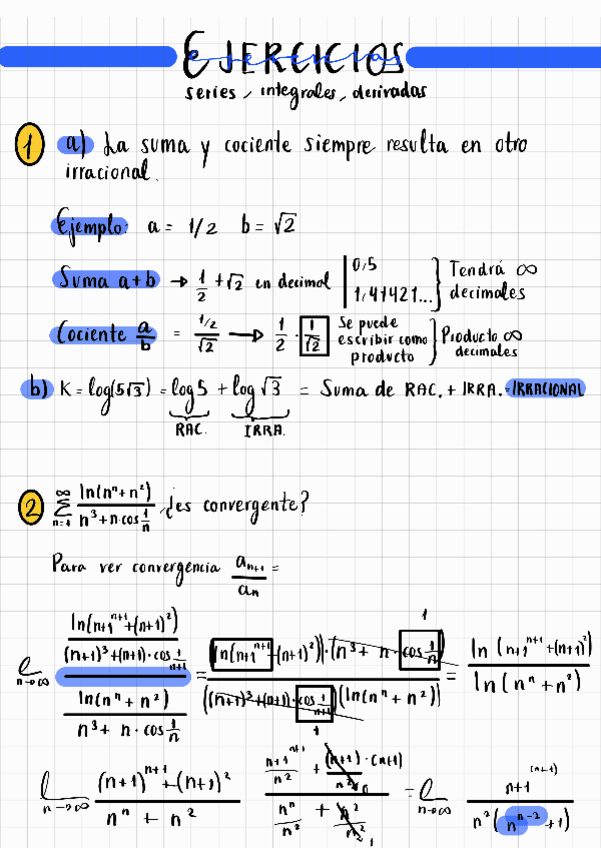 EJERCICIOS
series, integrales, derivadas
1 a) La suma y cociente siempre resulta en otro
irracional.
Ejemplo: a = 1/2 b = √2
Suma a+b → 1/2 + √2 en decimal | 0,5 1,41421... } Tendrá ∞ decimales
Cociente a/b = (1/2)/√2 → 1/2 · 1/√2 Se puede escribir como producto } Producto ∞ decimales
b) K = log(5√3) = log 5 + log √3 = Suma de RAC. + IRRA. = IRRACIONAL
RAC. IRRA.
2 ∑_{n=1}^{∞} ln(nⁿ + n²) / (n³ + n·cos 1/n) ¿es convergente?
Para ver convergencia a_{n+1}/a_n =
l_{n→∞} [ln(n+1^{n+1} + (n+1)²) / ((n+1)³ + (n+1)·cos 1/(n+1))] / [ln(nⁿ + n²) / (n³ + n·cos 1/n)] = [ln(n+1^{n+1} + (n+1)²)·(n³ + n·cos 1/n)] / [((n+1)³ + (n+1)·cos 1/(n+1))(ln(nⁿ + n²))] = ln(n+1^{n+1} + (n+1)²) / ln(nⁿ + n²)
l_{n→∞} ((n+1)^{n+1} + (n+1)²) / (nⁿ + n²) (n+1^{n+1}/n² + (n+1)·(n+1)/n²) / (nⁿ/n² + n²/n²) = l_{n→∞} n+1^{(n+1)} / n²(n^{n-2} + 1)